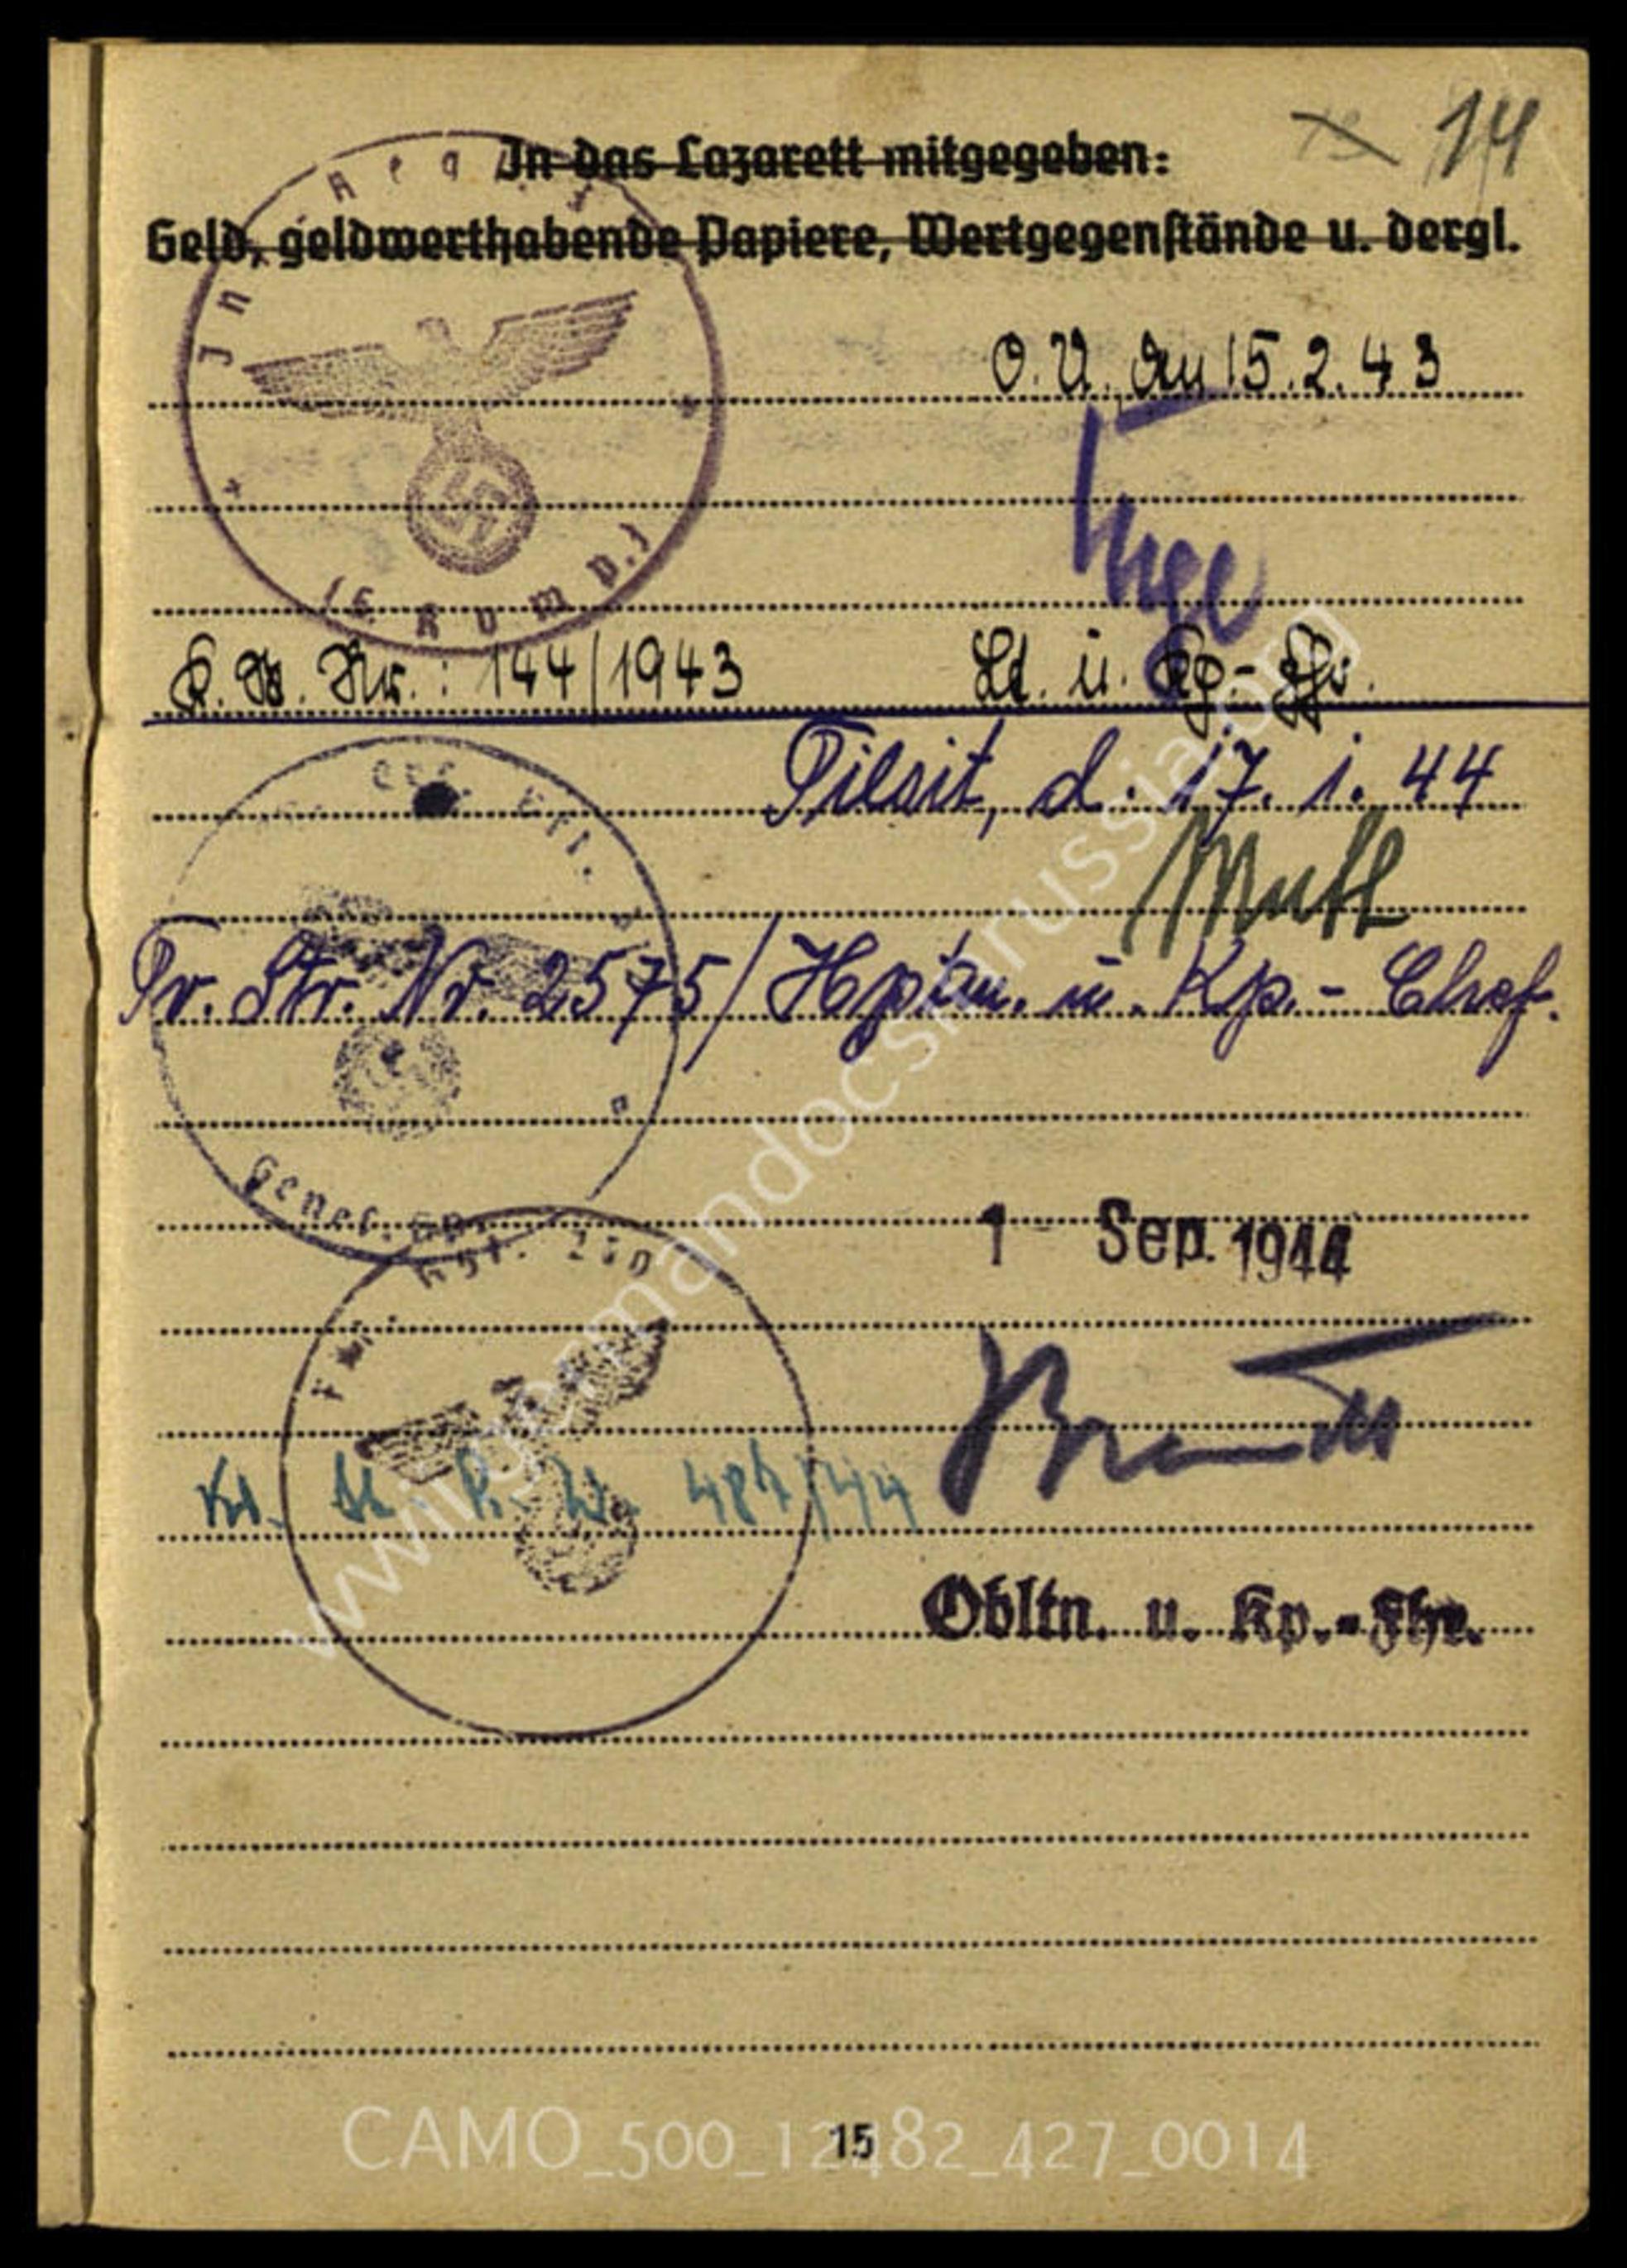 14
In das Lazarett mitgegeben:
Geld, geldwerthabende Papiere, Wertgegenstände u. dergl.
O.U., den 15.2.43
Nr.: 144/1943 Lt. u. Kp.-Fhr.
Tilsit, d. 17. 1. 44
Tr. Str. Nr. 2575/ Hptm. u. Kp.-Chef.
Genes.
1 Sep. 1944
487/44
Obltn. u. Kp.-Fhr.
www.germandocsinrussia.org
15
CAMO_500_12482_427_0014